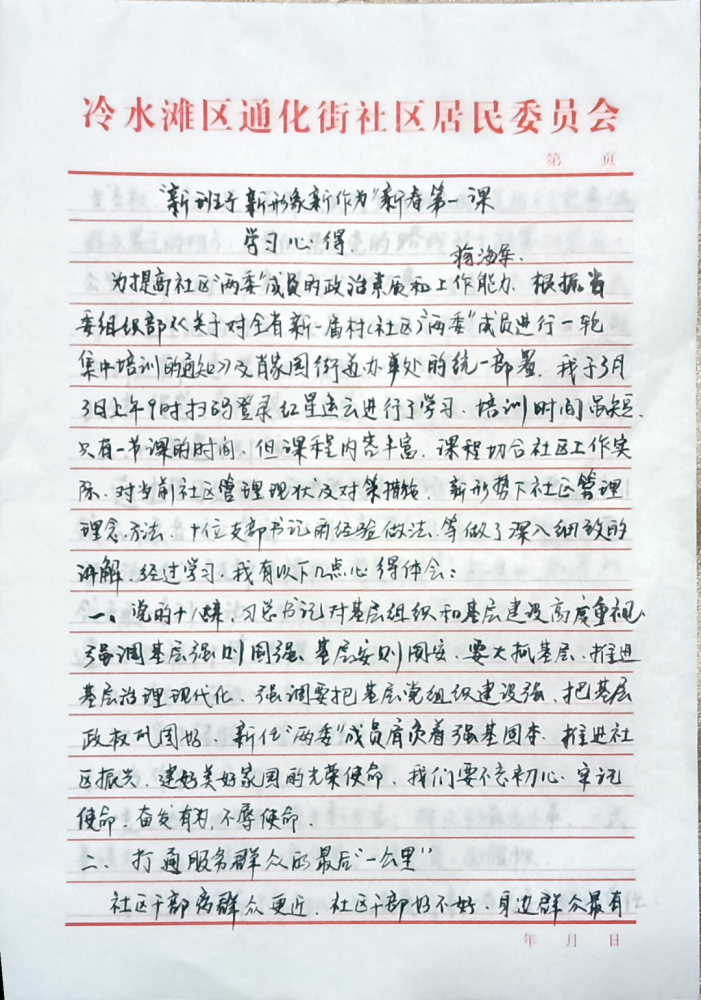 冷水滩区通化街社区居民委员会
第 页
“新班子新形象新作为”新春第一课
学习心得
蒋海军.
为提高社区“两委”成员的政治素质和工作能力、根据省
委组织部《关于对全省新一届村(社区)“两委”成员进行一轮
集中培训的通知》及肖家园街道办事处的统一部署、我于3月
3日上午9时扫码登录红星遠云进行了学习、培训时间虽短、
只有一节课的时间、但课程内容丰富、课程切合社区工作实
际、对当前社区管理现状及对策措施、新形势下社区管理
理念、方法、十位支部书记的经验做法、等做了深入细致的
讲解、经过学习、我有以下几点心得体会:
一、党的十八来、习总书记对基层组织和基层建设高度重视、
强调基层强则国强、基层安则国安、要大抓基层、推进
基层治理现代化、强调要把基层党组织建设强、把基层
政权巩固好 新任“两委”成员肩负着强基固本、推进社
区振兴、建好美好家园的光荣使命、我们要不忘初心、牢记
使命、奋发有为,不辱使命.
二、打通服务群众的最后“一公里”
社区干部离群众更近、社区干部好不好、身边群众最有
年 月 日